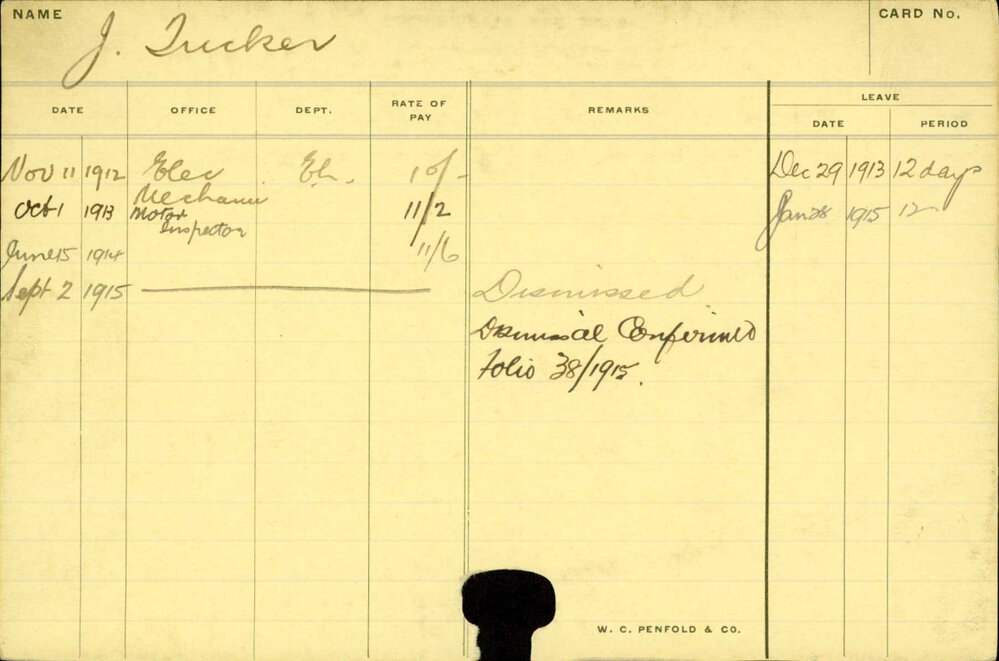 NAME
J. Tucker
CARD No.
DATE OFFICE DEPT. RATE OF PAY REMARKS LEAVE
DATE PERIOD
Nov 11 1912 Elec El. 10/- Dec 29 1913 12 days
Mechanic
Oct 1 1913 Motor 11/2 Jan 28 1915 12
Inspector
June 15 1914 11/6
Sept 2 1915 Dismissed
Dismissal Confirmed
Folio 38/1915.
W. C. PENFOLD & CO.